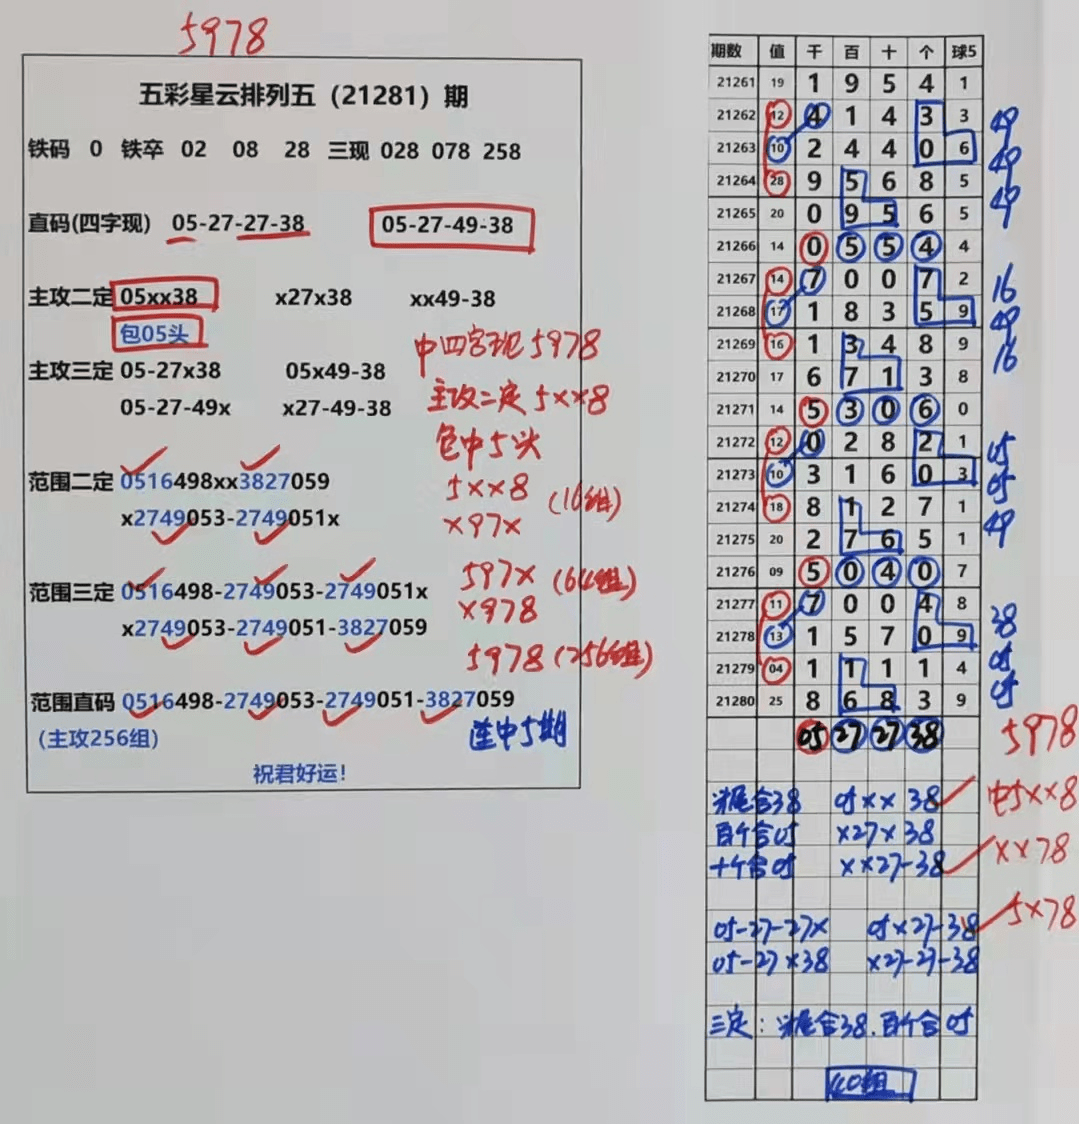 5978
五彩星云排列五（21281）期
铁码 0 铁卒 02 08 28 三现 028 078 258
直码(四字现) 05-27-27-38 05-27-49-38
主攻二定 05xx38 x27x38 xx49-38
包05头
中四字现5978
主攻三定 05-27x38 05x49-38
主攻二定5xx8
05-27-49x x27-49-38
包中5头
范围二定 0516498xx3827059
5xx8 (16组)
x2749053-2749051x
x97x
范围三定 0516498-2749053-2749051x
597x (64组)
x2749053-2749051-3827059
x978
5978(256组)
范围直码 0516498-2749053-2749051-3827059
(主攻256组)
连中5期
祝君好运!
期数 值 千 百 十 个 球5
21261 19 1 9 5 4 1
21262 12 4 1 4 3 3 49
21263 10 2 4 4 0 6 49
21264 28 9 5 6 8 5 49
21265 20 0 9 5 6 5
21266 14 0 5 5 4 4
21267 14 7 0 0 7 2 16
21268 17 1 8 3 5 9 49
21269 16 1 3 4 8 9 16
21270 17 6 7 1 3 8
21271 14 5 3 0 6 0
21272 12 0 2 8 2 1 05
21273 10 3 1 6 0 3 05
21274 18 8 1 2 7 1 49
21275 20 2 7 6 5 1
21276 09 5 0 4 0 7
21277 11 7 0 0 4 8 38
21278 13 1 5 7 0 9 05
21279 04 1 1 1 1 4 05
21280 25 8 6 8 3 9
05 27 27 38 5978
头尾合38 05xx38 中5xx8
百个合05 x27x38
十个合05 xx27-38 xx78
05-27-27x 05x27-38 5x78
05-27x38 x27-27-38
三定：头尾合38.百个合05
40组